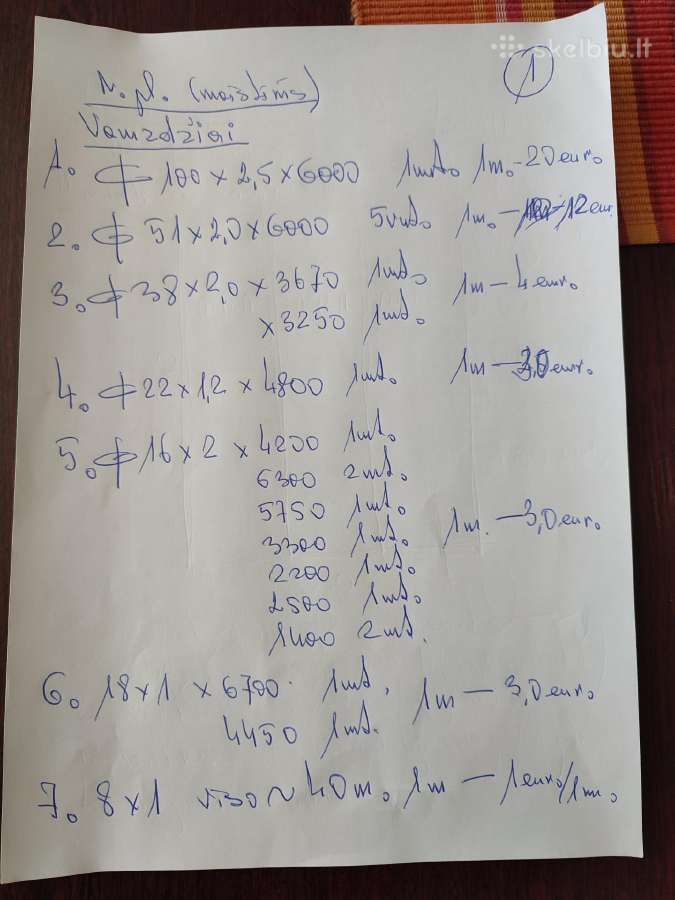 skelbiu.lt
1
N. pl. (maistinis)
Vamzdžiai
1. ⌀ 100 x 2,5 x 6000 1vnt. 1m. - 20 eur.
2. ⌀ 51 x 2,0 x 6000 5vnt. 1m. - 12 eur.
3. ⌀ 38 x 2,0 x 3670 1vnt. 1m - 4 eur.
x 3250 1vnt.
4. ⌀ 22 x 1,2 x 4800 1vnt. 1m - 3,0 eur.
5. ⌀ 16 x 2 x 4200 1vnt.
6300 2vnt.
5750 1vnt.
3300 1vnt.
2200 1vnt.
2500 1vnt.
1400 2vnt.
1m. - 3,0 eur.
6. 18 x 1 x 6700 1vnt. 1m - 3,0 eur.
4450 1vnt.
7. 8 x 1 viso ~ 40m. 1m - 1 euro/1m.